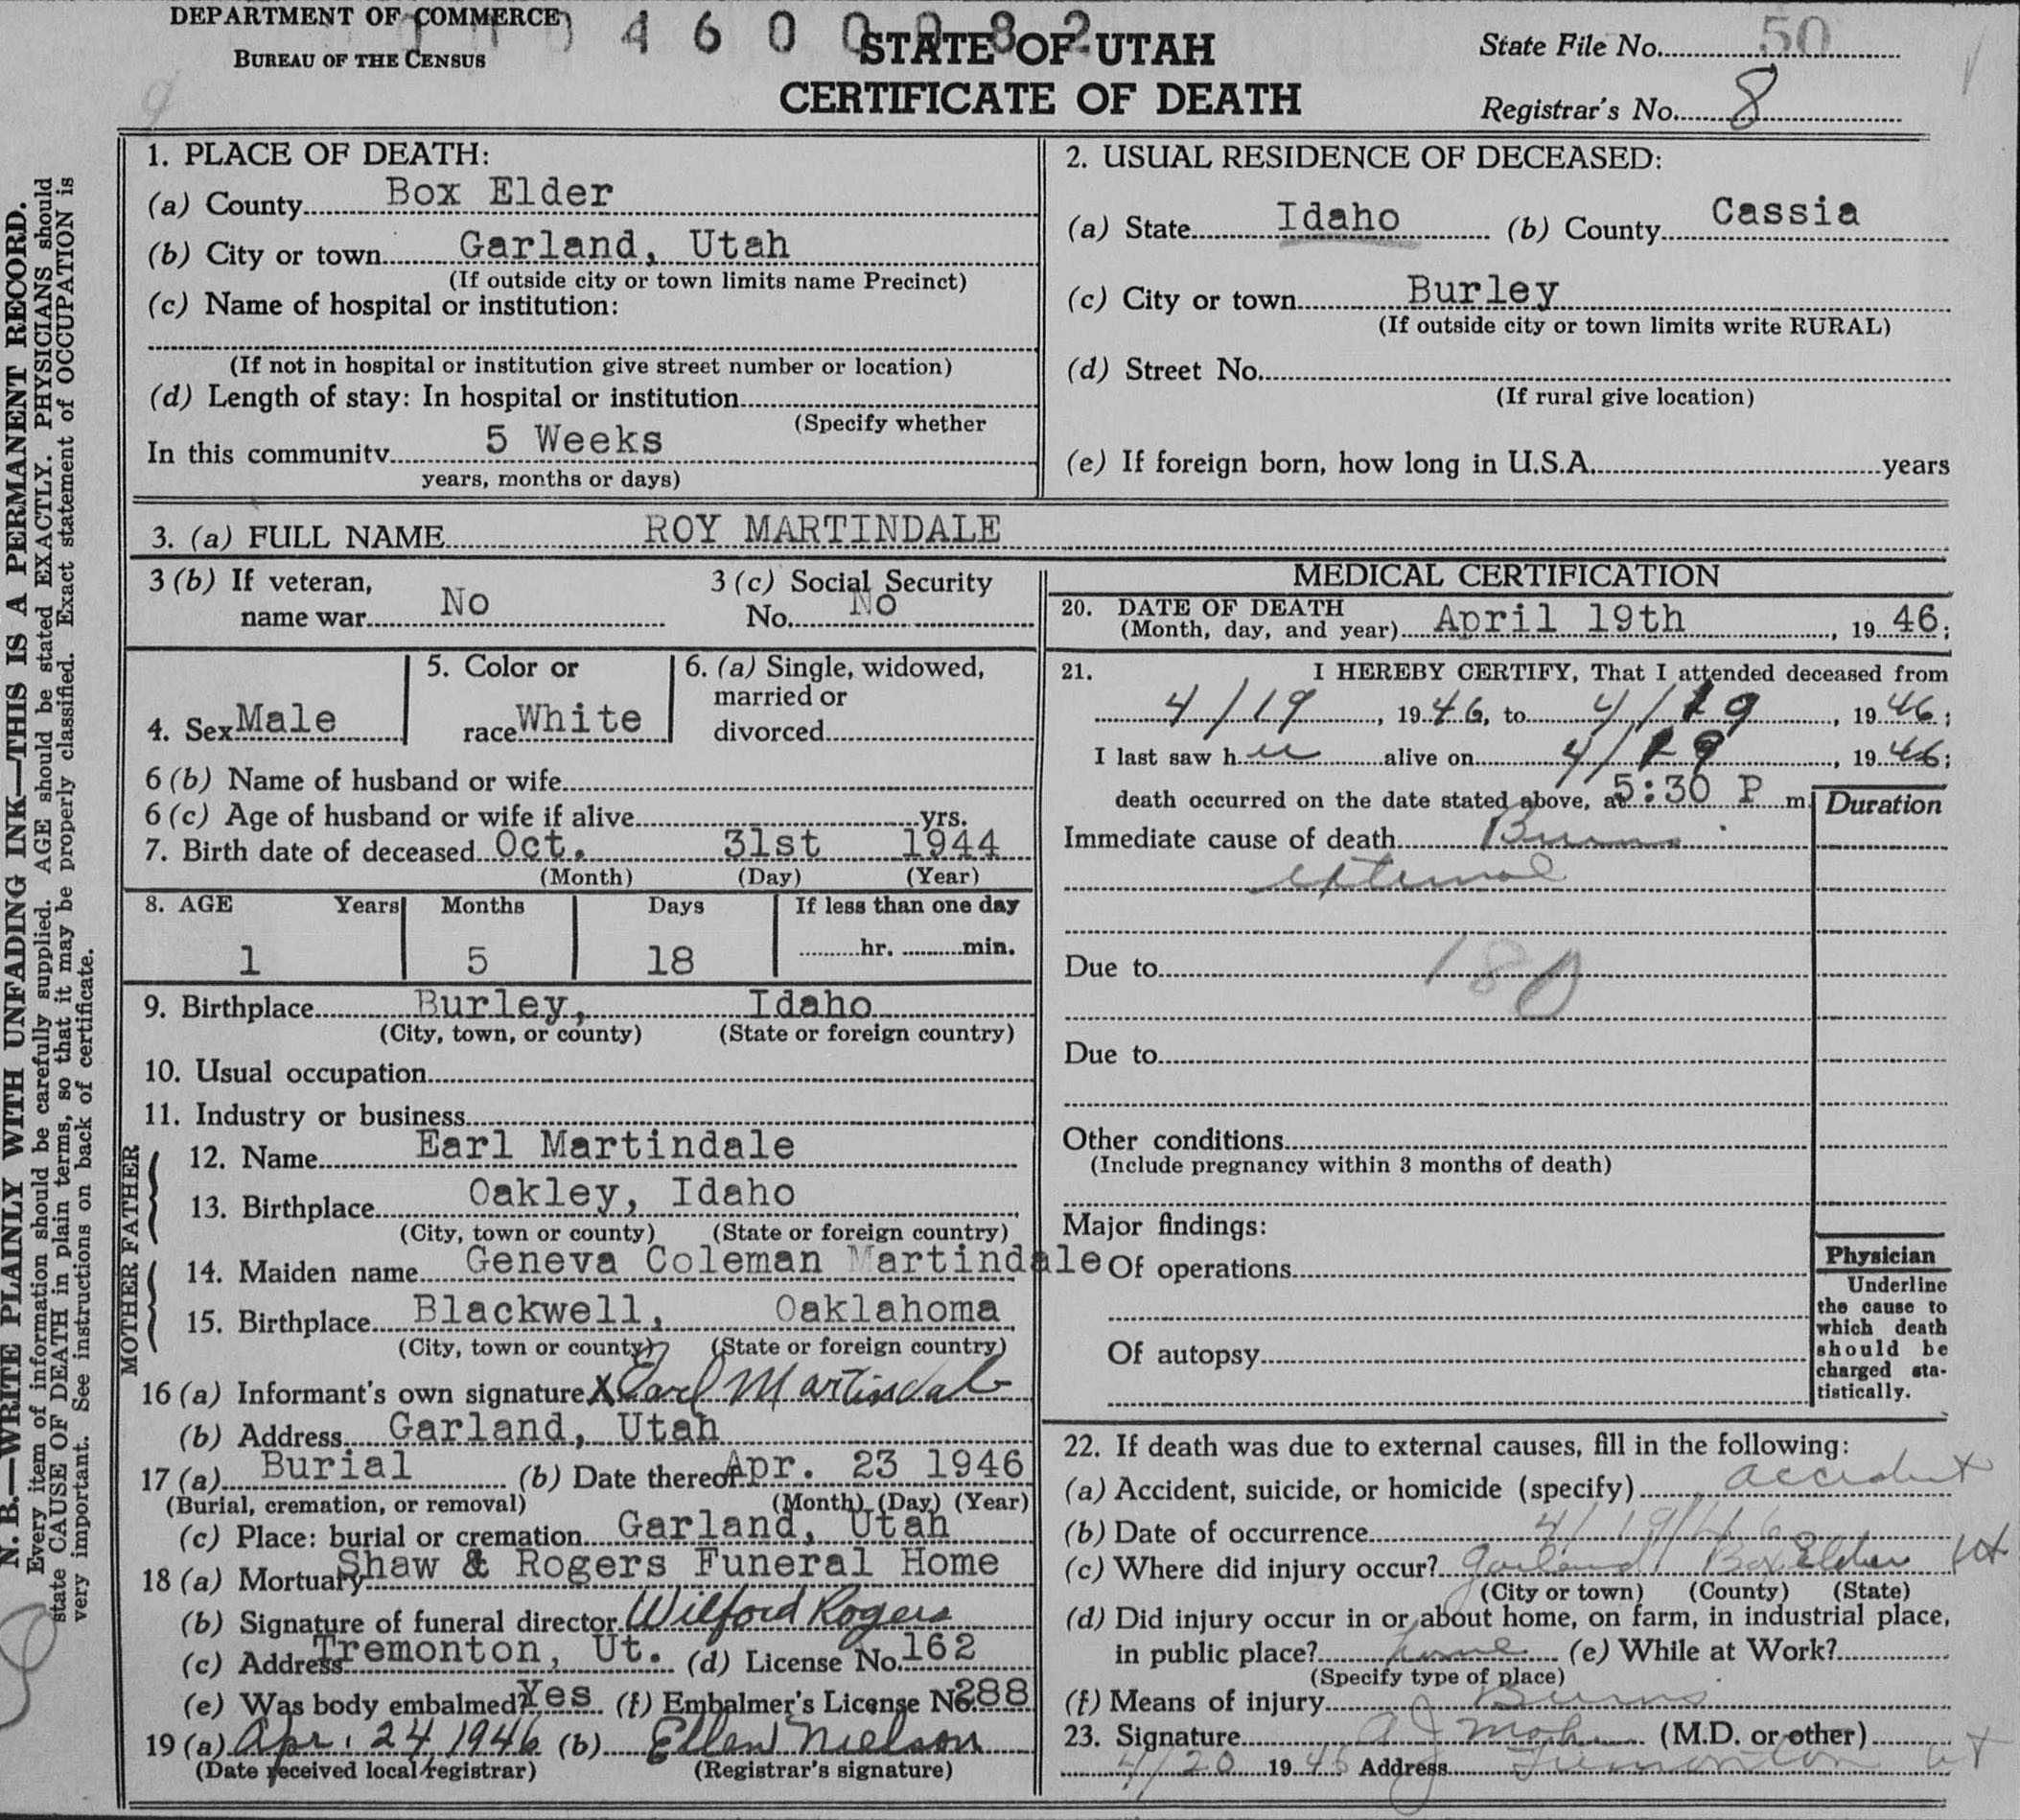 DEPARTMENT OF COMMERCE
BUREAU OF THE CENSUS
4 6 0 0 0 8 2
STATE OF UTAH
CERTIFICATE OF DEATH
State File No. 50
Registrar's No. 8
N. B.—WRITE PLAINLY WITH UNFADING INK—THIS IS A PERMANENT RECORD.
Every item of information should be carefully supplied. AGE should be stated EXACTLY. PHYSICIANS should
state CAUSE OF DEATH in plain terms, so that it may be properly classified. Exact statement of OCCUPATION is
very important. See instructions on back of certificate.
1. PLACE OF DEATH:
(a) County Box Elder
(b) City or town Garland, Utah
(If outside city or town limits name Precinct)
(c) Name of hospital or institution:
(If not in hospital or institution give street number or location)
(d) Length of stay: In hospital or institution
(Specify whether
In this community 5 Weeks
years, months or days)
2. USUAL RESIDENCE OF DECEASED:
(a) State Idaho (b) County Cassia
(c) City or town Burley
(If outside city or town limits write RURAL)
(d) Street No.
(If rural give location)
(e) If foreign born, how long in U.S.A. years
3. (a) FULL NAME ROY MARTINDALE
3 (b) If veteran,
name war No
3 (c) Social Security
No. No
4. Sex Male
5. Color or
race White
6. (a) Single, widowed,
married or
divorced
6 (b) Name of husband or wife
6 (c) Age of husband or wife if alive yrs.
7. Birth date of deceased Oct. 31st 1944
(Month) (Day) (Year)
8. AGE Years Months Days If less than one day
1 5 18 hr. min.
9. Birthplace Burley, Idaho
(City, town, or county) (State or foreign country)
10. Usual occupation
11. Industry or business
FATHER
12. Name Earl Martindale
13. Birthplace Oakley, Idaho
(City, town or county) (State or foreign country)
MOTHER
14. Maiden name Geneva Coleman Martindale
15. Birthplace Blackwell, Oaklahoma
(City, town or county) (State or foreign country)
16 (a) Informant's own signature X Earl Martindale
(b) Address Garland, Utah
17 (a) Burial (b) Date thereof Apr. 23 1946
(Burial, cremation, or removal) (Month) (Day) (Year)
(c) Place: burial or cremation Garland, Utah
18 (a) Mortuary Shaw & Rogers Funeral Home
(b) Signature of funeral director Wilford Rogers
(c) Address Tremonton, Ut. (d) License No. 162
(e) Was body embalmed? Yes (f) Embalmer's License No. 288
19 (a) Apr. 24 1946 (b) Ellen Nielson
(Date received local registrar) (Registrar's signature)
MEDICAL CERTIFICATION
20. DATE OF DEATH
(Month, day, and year) April 19th, 19 46;
21. I HEREBY CERTIFY, That I attended deceased from
4/19, 19 46, to 4/19, 19 46;
I last saw h alive on 4/19, 19 46;
death occurred on the date stated above, at 5:30 P m.
Duration
Immediate cause of death Burns
external
Due to 180
Due to
Other conditions
(Include pregnancy within 3 months of death)
Major findings:
Of operations
Of autopsy
Physician
Underline
the cause to
which death
should be
charged sta-
tistically.
22. If death was due to external causes, fill in the following:
(a) Accident, suicide, or homicide (specify) accident
(b) Date of occurrence 4/19/46
(c) Where did injury occur? Garland Box Elder Ut
(City or town) (County) (State)
(d) Did injury occur in or about home, on farm, in industrial place,
in public place? home (e) While at Work?
(Specify type of place)
(f) Means of injury Burns
23. Signature (M.D. or other)
4/20 19 46 Address Tremonton Ut